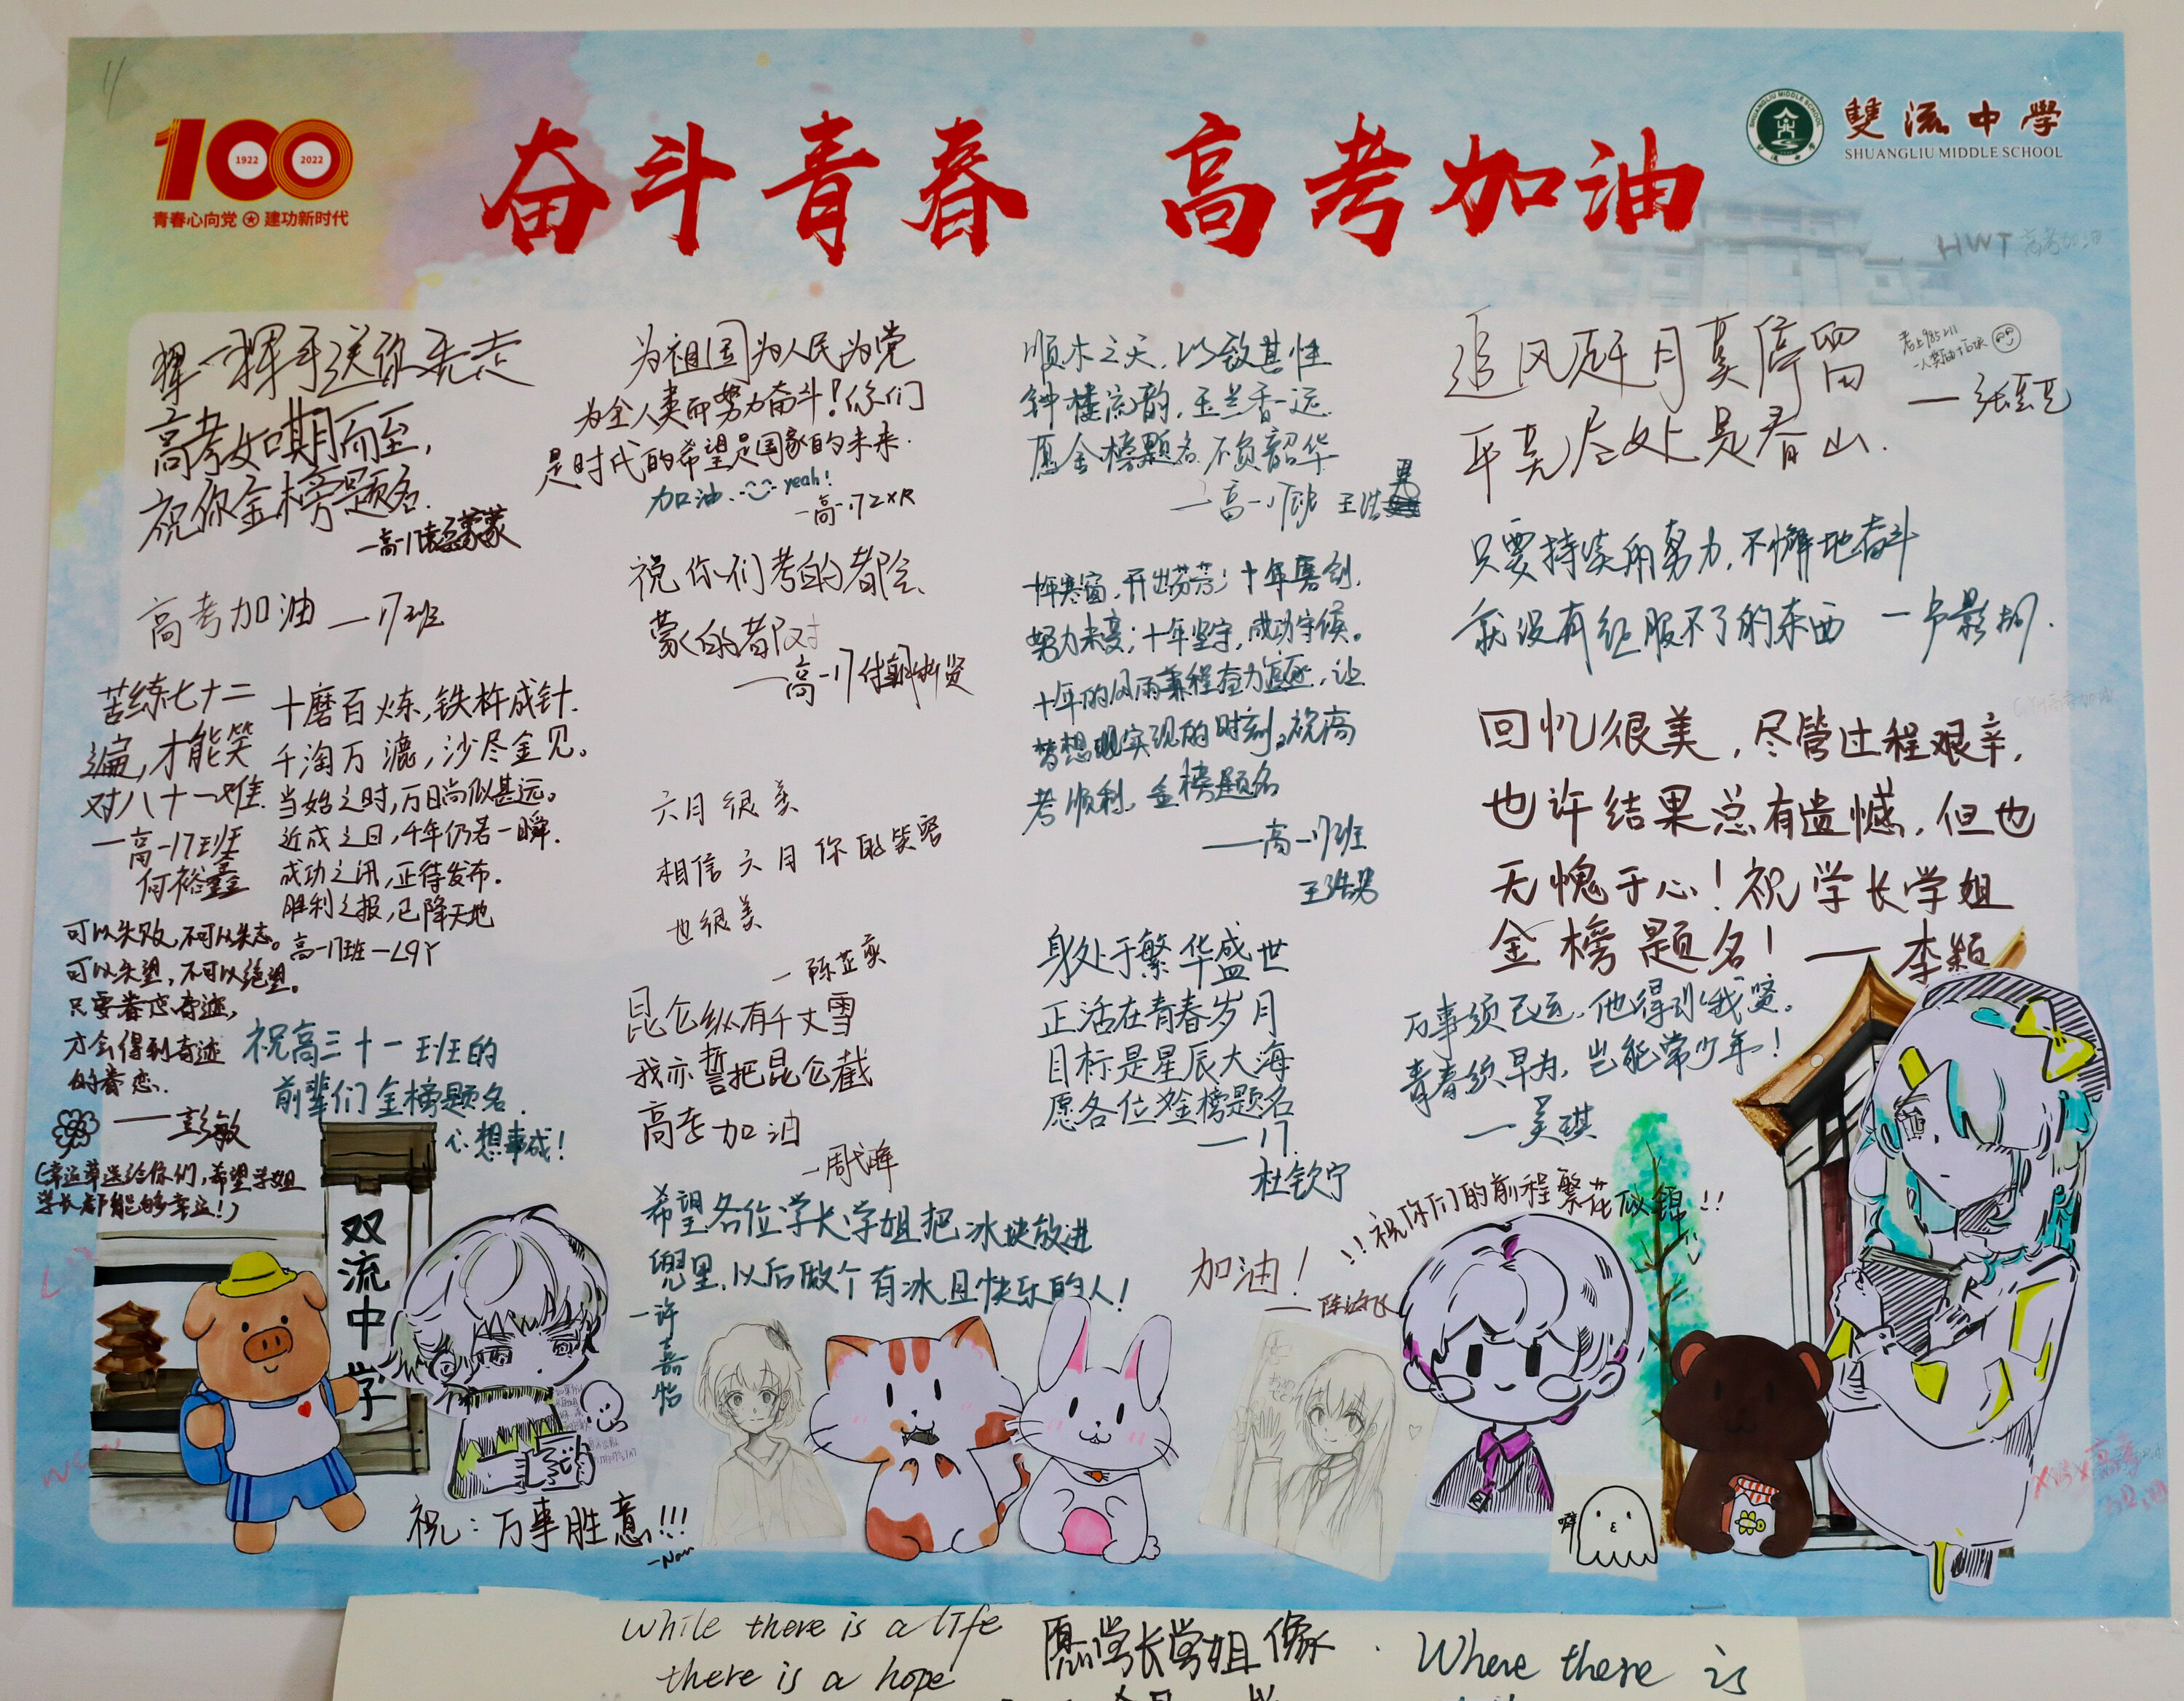 100
1922
2022
青春心向党 建功新时代
奋斗青春 高考加油
SHUANGLIU MIDDLE SCHOOL
雙流中學
雙流中學
SHUANGLIU MIDDLE SCHOOL
HWT 高考加油
挥一挥手送你
高考如期而至，
祝你金榜题名.
高考加油 —17班
苦练七十二
遍，才能笑
对八十一难.
—高一17班
何裕鑫
十磨百炼，铁杵成针.
千淘万漉，沙尽金见。
当始之时，万日尚似甚远。
近成之日，千年仍若一瞬.
成功之讯，正待发布.
胜利之报，已降天地
高一17班—L9Y
可以失败，不可以失志。
可以失望，不可以绝望。
只要眷恋奇迹，
才会得到奇迹
的眷恋.
——彭敏
(幸运草送给你们，希望学姐
学长都能够幸运！)
祝高三十一班的
前辈们金榜题名.
心想事成！
双流中学
祝：万事胜意!!!
-Nan
为祖国为人民为党
为全人类而努力奋斗！你们
是时代的希望是国家的未来.
加油. yeah!
—高一.17ZXR
祝你们考的都会、
蒙的都对
六月很美
相信六月你的笑容
也很美
昆仑纵有千丈雪
我亦誓把昆仑截
高考加油
希望各位学长学姐把冰块放进
兜里，以后做个有冰且快乐的人！
—许嘉怡
顺木之天，以致其性
钟楼流韵，玉兰香远.
愿金榜题名 不负韶华
十年寒窗，开出芬芳；十年磨剑，
努力未变；十年坚守，成功守候。
十年的风雨兼程奋力追逐，让
梦想实现的时刻。祝高
考顺利，金榜题名
——高一17班
王浩男
身处于繁华盛世
正活在青春岁月
目标是星辰大海
愿各位金榜题名
—17.
杜钦宁
加油！
追风赶月莫停留
平芜尽处是春山.
只要持续的努力，不懈地奋斗
就没有征服不了的东西
回忆很美，尽管过程艰辛，
也许结果总有遗憾，但也
无愧于心！祝学长学姐
金榜题名！——李颖
万事须己运，他得非我贤。
青春须早为，岂能常少年！
—吴琪
!!祝你们的前程繁花似锦!!
While there is a life
there is a hope
愿学长学姐像
Where there is